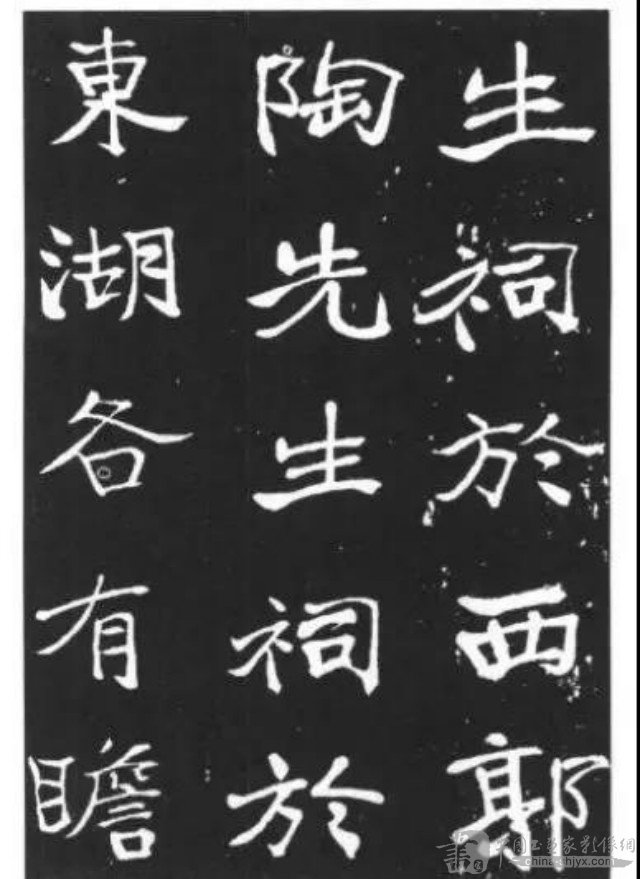 生祠於西郭
陶先生祠於
東湖各有瞻
中国书画家影像网
china-shjyx.com